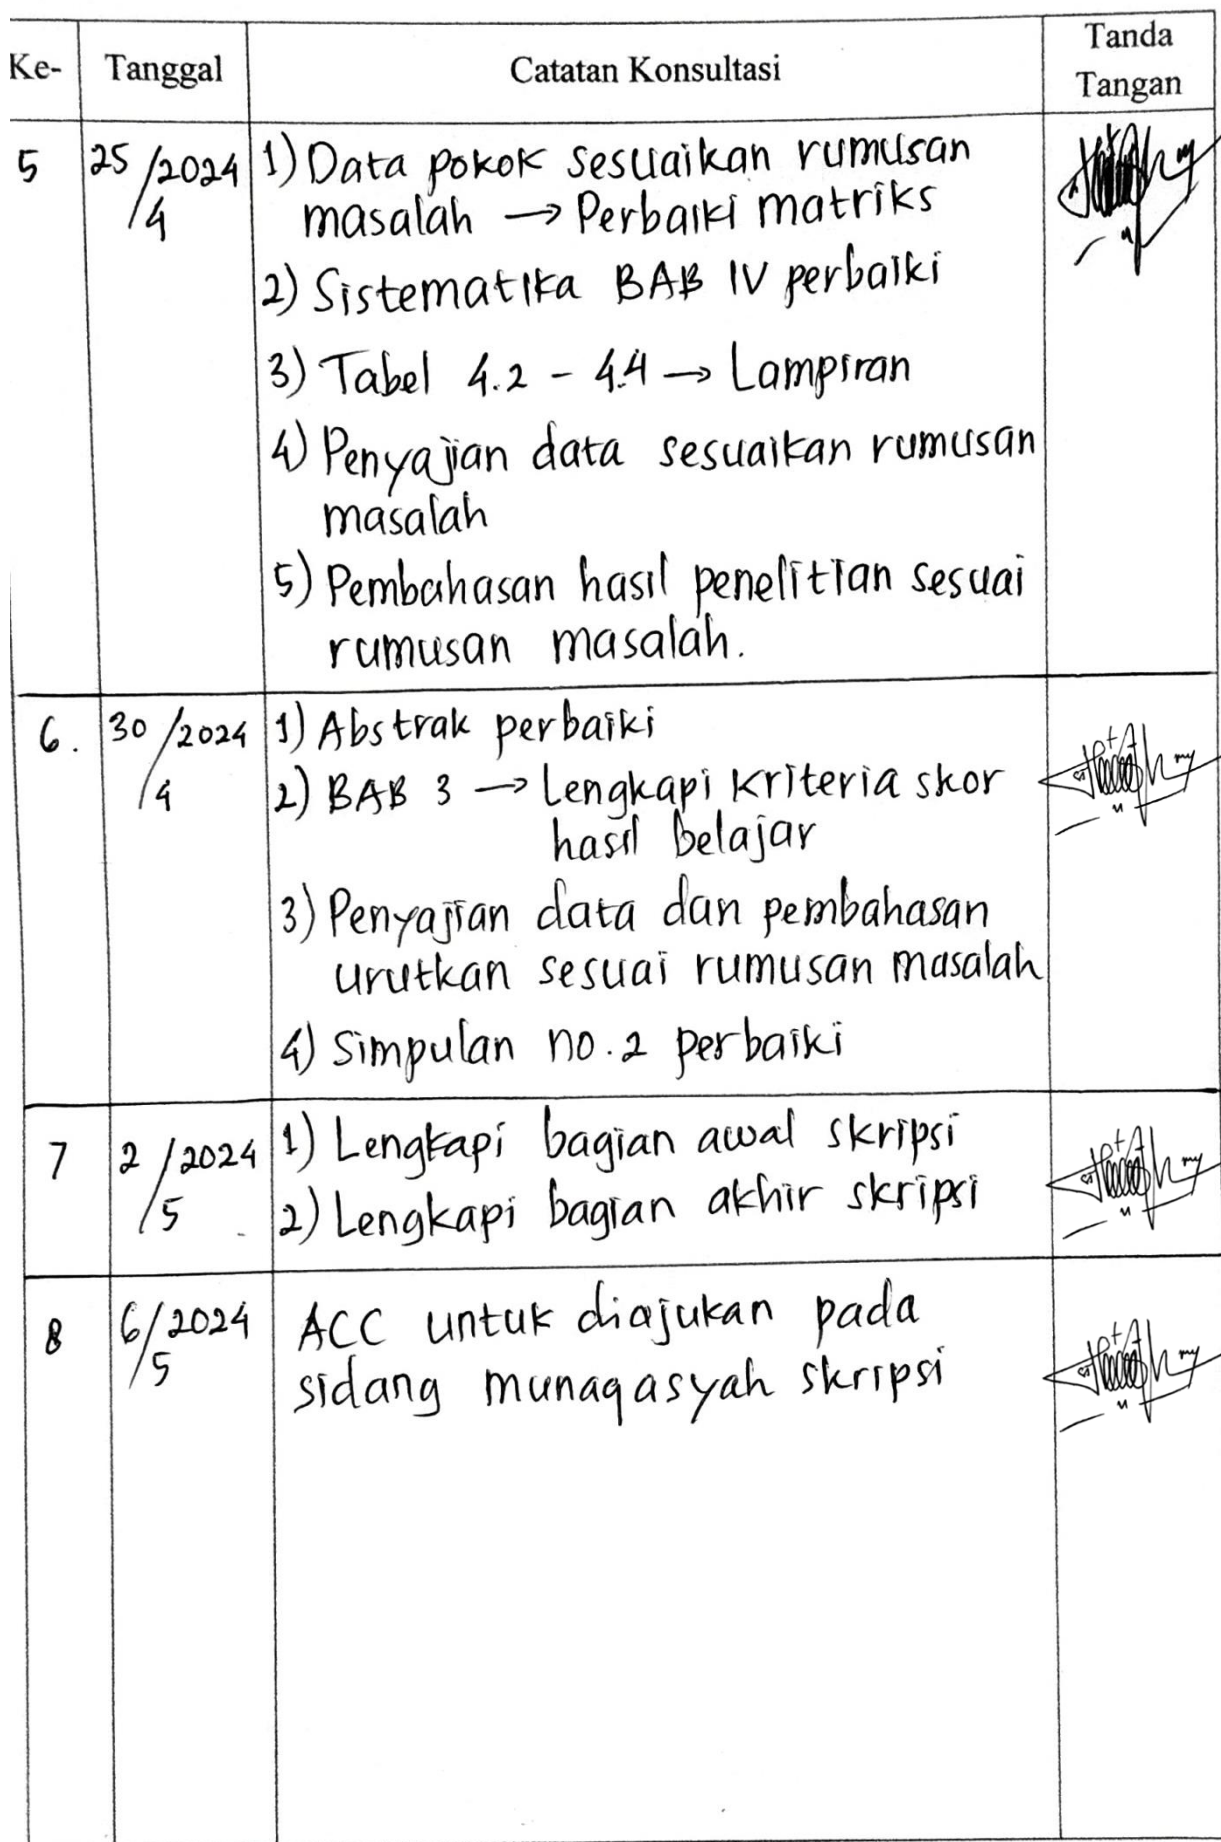 Ke- Tanggal Catatan Konsultasi Tanda
Tangan
5 25/4/2024 1) Data pokok sesuaikan rumusan
masalah → Perbaiki matriks
2) Sistematika BAB IV perbaiki
3) Tabel 4.2 - 4.4 → Lampiran
4) Penyajian data sesuaikan rumusan
masalah
5) Pembahasan hasil penelitian sesuai
rumusan masalah.
6. 30/4/2024 1) Abstrak perbaiki
2) BAB 3 → Lengkapi kriteria skor
hasil belajar
3) Penyajian data dan pembahasan
urutkan sesuai rumusan masalah
4) Simpulan no. 2 perbaiki
7 2/5/2024 1) Lengkapi bagian awal skripsi
2) Lengkapi bagian akhir skripsi
8 6/5/2024 ACC untuk diajukan pada
sidang munaqasyah skripsi